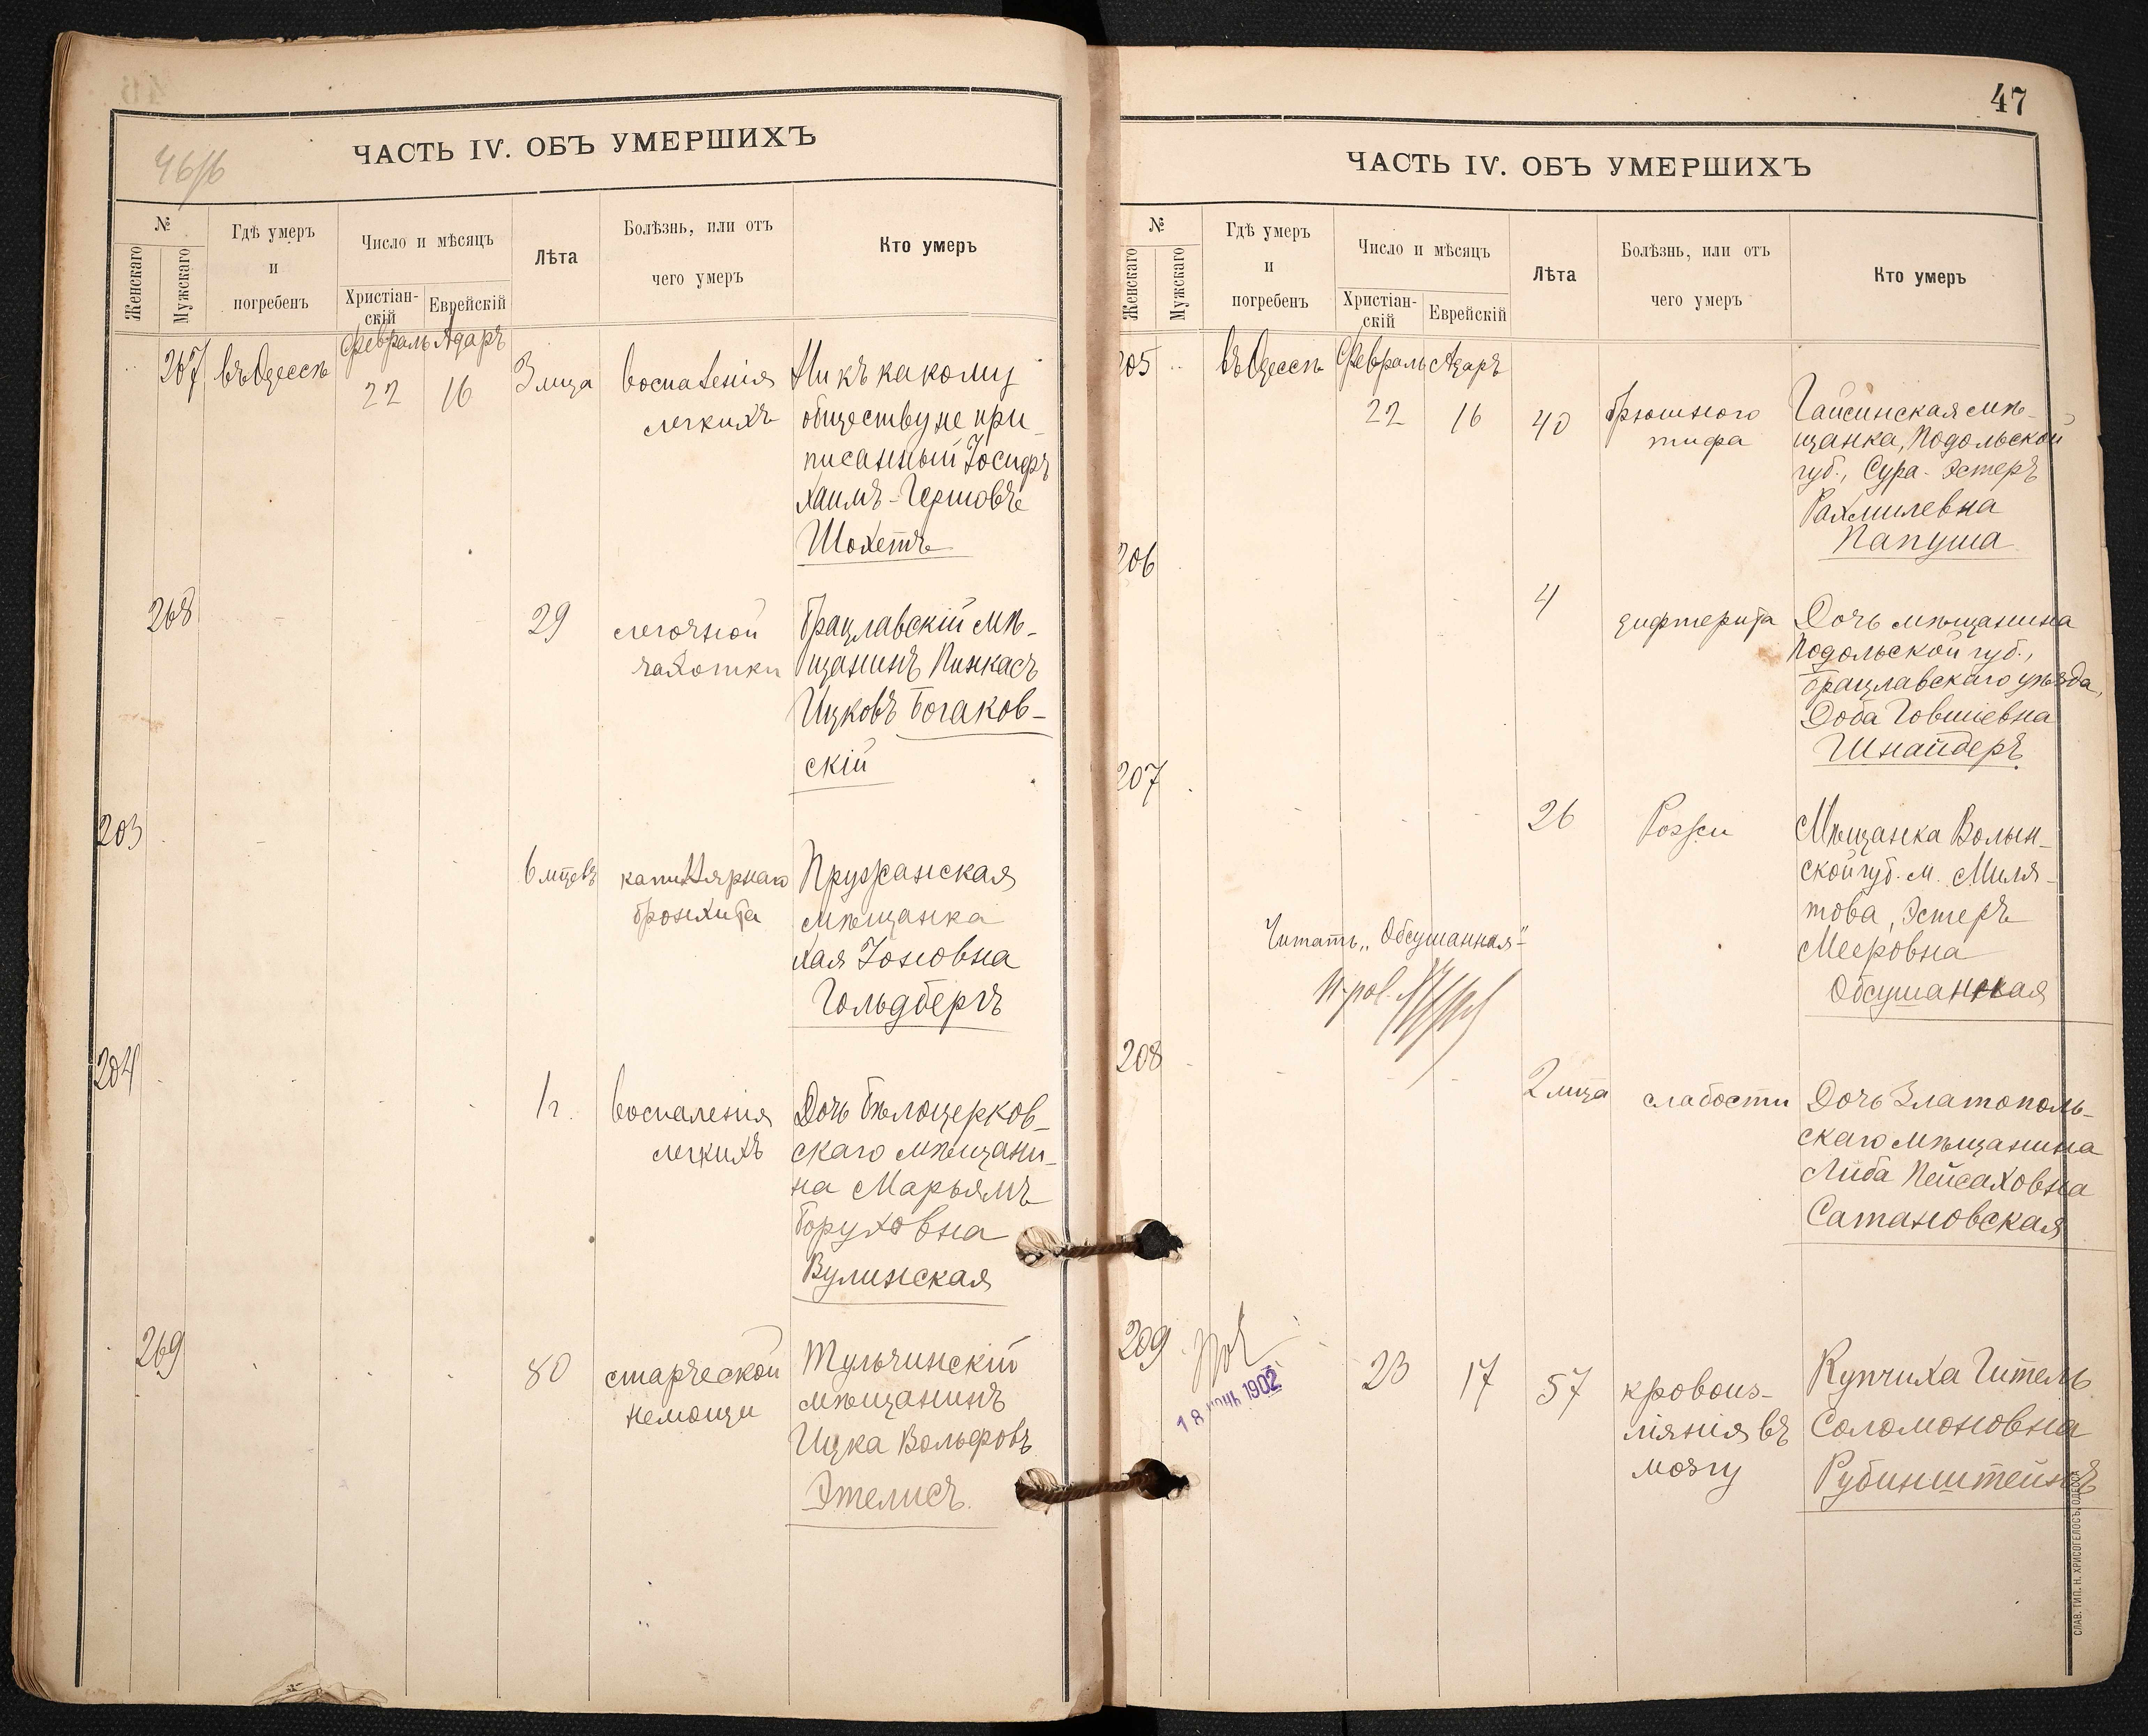 46/б
ЧАСТЬ IV. ОБЪ УМЕРШИХЪ
№
Женскаго
Мужскаго
Гдѣ умеръ
и
погребенъ
Число и мѣсяцъ
Христіан-
скій
Еврейскій
Лѣта
Болѣзнь, или отъ
чего умеръ
Кто умеръ
267 въ Одессѣ Февраль Адаръ
22 16 3 мца воспаленія легкихъ
Ни къ какому
обществу не при-
писанный Іосифъ
Хаимъ-Гершовъ
Шохетъ
268 29 легочной
чахотки
Брацлавскій мѣ-
щанинъ Пинкасъ
Ицковъ Богаков-
скій
203 6 мцевъ капиллярнаго
бронхита
Пружанская
мѣщанка
Хая Іоновна
Гольдбергъ
204 1 г. воспаленія
легкихъ
Дочь Бѣлоцерков-
скаго мѣщани-
на Марьямъ
Боруховна
Вулинская
269 80 старческой
немощи
Тульчинскій
мѣщанинъ
Ицка Вольфовъ
Этелисъ.
47
ЧАСТЬ IV. ОБЪ УМЕРШИХЪ
№
Женскаго
Мужскаго
Гдѣ умеръ
и
погребенъ
Число и мѣсяцъ
Христіан-
скій
Еврейскій
Лѣта
Болѣзнь, или отъ
чего умеръ
Кто умеръ
205 въ Одессѣ Февраль Адаръ
22 16 40 брюшного
тифа
Гайсинская мѣ-
щанка, Подольской
губ., Сура-Эстеръ
Рахмилевна
Папуша
206
4 дифтерита
Дочь мѣщанина
Подольской губ.,
Брацлавскаго уѣзда,
Доба Говшіевна
Шнайдеръ.
207
26 Рожи
Мѣщанка Волын-
ской губ. м. Миля-
това, Эстеръ
Мееровна
Обсушанская
Читать „Обсушанная"
208
2 мца слабости
Дочь Златополь-
скаго мѣщанина
Либа Пейсаховна
Сатановская
209
18 1902
23 17 57 кровоиз-
ліянія въ
мозгу
Купчиха Гитель
Соломоновна
Рубинштейнъ
СЛАВ. ТИП. Н. ХРИСОГЕЛОСЪ, ОДЕССА